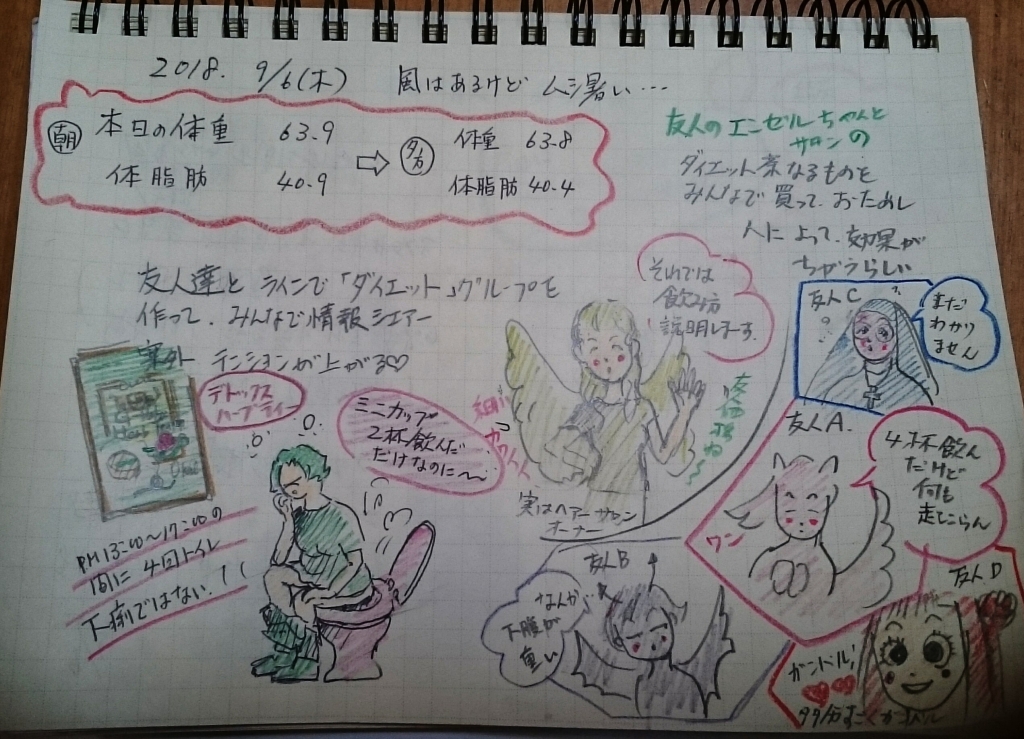 2018. 9/6(木) 風はあるけど ムシ暑い…
朝 本日の体重 63.9
体脂肪 40.9
⇨ 夕方 体重 63.8
体脂肪 40.4
友人のエンゼルちゃんと
サロンの
ダイエット茶なるものを
みんなで買って、おためし
人によって、効果が
ちがうらしい
友人達とラインで「ダイエット」グループを
作って、みんなで情報シェアー
案外 テンションが上がる♡
デトックス
ハーブティー
ミニカップ
2杯飲んだ
だけなのに〜
PM13:00〜17:00の
間に4回トイレ
下痢ではない!!
それでは
飲み方
説明しまーす
実はヘアーサロン
オーナー
友人C
まだ
わかり
ません
友人A.
4杯飲ん
だけど
何も
起こらん
ワン
友人B
なんか
下腹が
重い
友人D